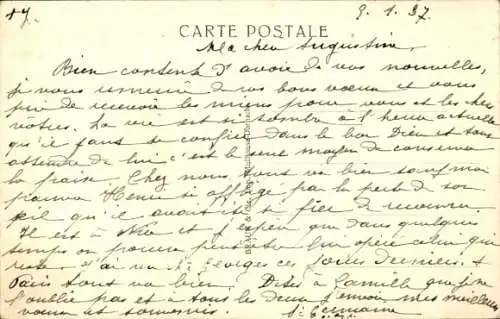 84
9.1.37.
CARTE POSTALE
Ma chère Augustine,
Bien contente d'avoir de vos nouvelles,
je vous remercie de vos bons vœux et vous
prie de recevoir les miens pour vous et les chers
vôtres. La vie est si sombre à l'heure actuelle
qu'il faut se confier dans le bon Dieu et tout
attendre de lui c'est le seul moyen de conserver
la paix. Chez nous tous va bien sauf mon
pauvre Henri si affligé par la perte de son
qu'il avait été si fier de recevoir.
Il est à Nice et j'espère que dans quelques
temps on pourra peut-être lui opérer celui qui
reste. J'ai vu Georges ces jours derniers. à
Paris tous va bien. Dites à Camille que je ne
l'oublie pas et à tous les deux j'envoie mes meilleurs
vœux et souvenirs.
Germaine